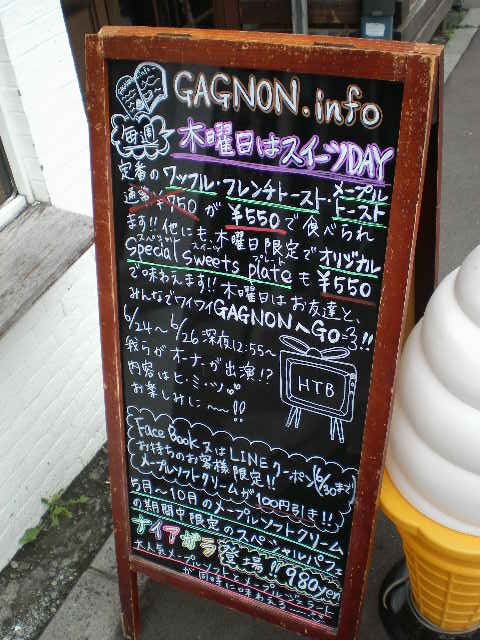 GAGNON.info
毎週
木曜日はスイーツDAY
定番の ワッフル・フレンチトースト・メープルトースト
通常¥750 が ¥550 で 食べられ
ます!! 他にも、木曜日限定で オリジナル
スペシャル スイーツ プレート
special sweets plate も ¥550
で味わえます!! 木曜日はお友達と、
みんなでワイワイGAGNONへGO!!
6/24〜6/26 深夜12:55〜
我らがオーナーが出演!?
内容はヒ・ミ・ツ
お楽しみに〜!!
HTB
Face Book又はLINEクーポン(6/30まで)
お持ちのお客様限定!!
メープルソフトクリームが100円引き!!
5月〜10月のメープルソフトクリーム
の期間中限定のスペシャルパフェ
ナイアガラ登場!! 980yen
大人気メープルソフトとメープル
が同時に味わえる